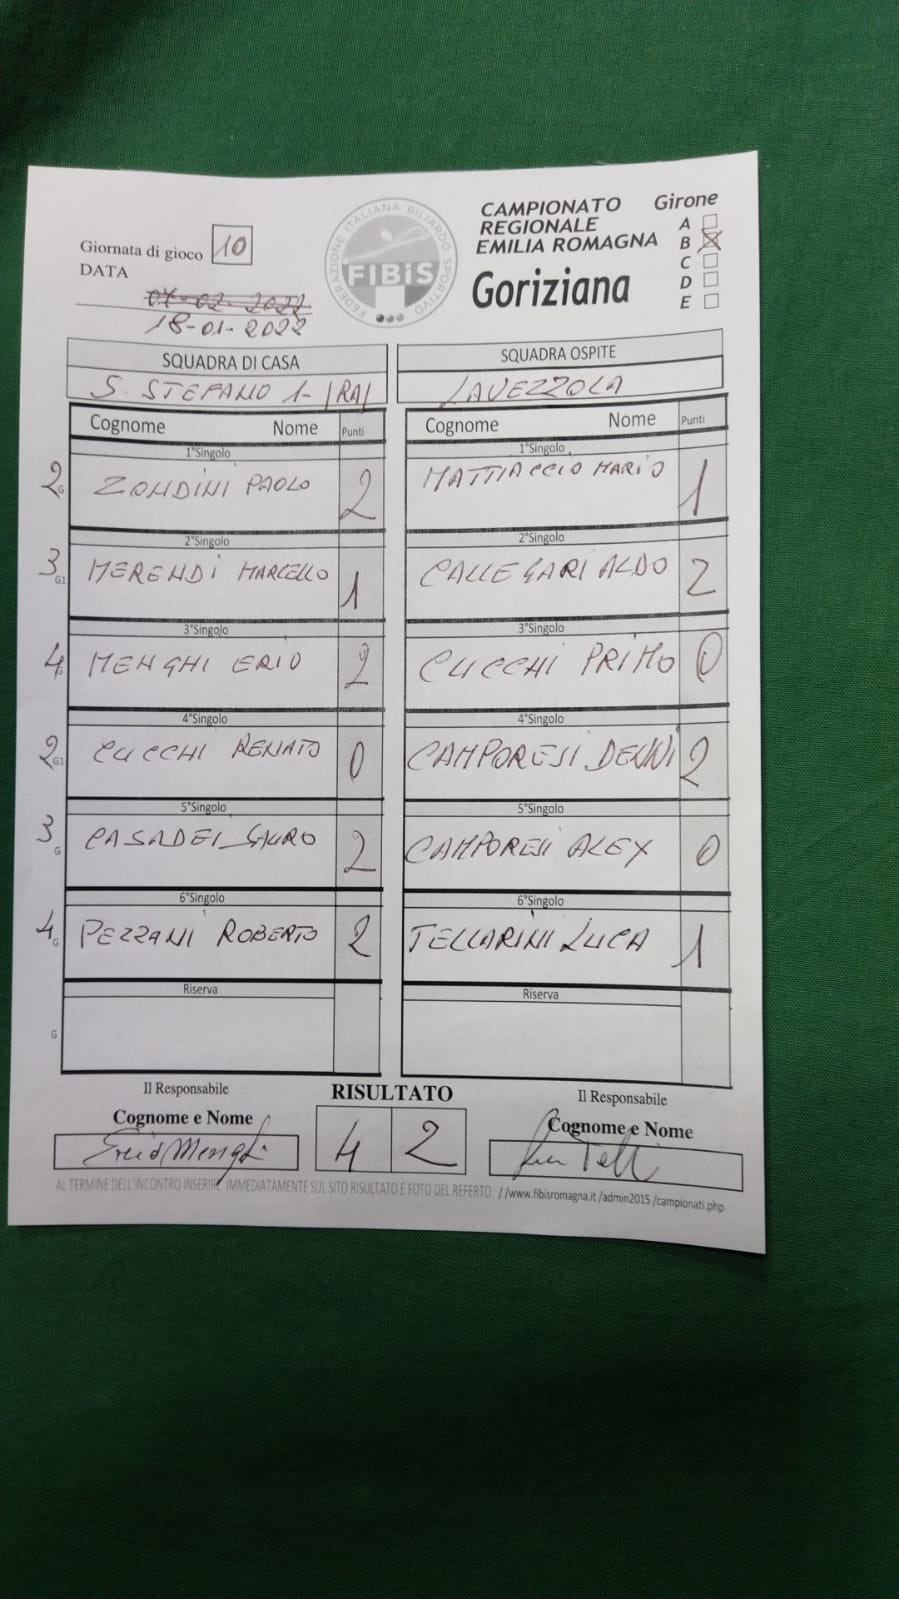 CAMPIONATO
REGIONALE
EMILIA ROMAGNA
Goriziana
Girone
A
B
C
D
E
FEDERAZIONE ITALIANA BILIARDO SPORTIVO
FIBiS
Giornata di gioco 10
DATA
07-02-2022
18-01-2022
SQUADRA DI CASA
S. STEFANO 1- |RA|
SQUADRA OSPITE
LAVEZZOLA
Cognome Nome Punti
Cognome Nome Punti
1°Singolo
1°Singolo
2 G ZONDINI PAOLO 2
MATTIACCIO MARIO 1
2°Singolo
2°Singolo
3 G1 MERENDI MARCELLO 1
CALLEGARI ALDO 2
3°Singolo
3°Singolo
4 MENGHI ERIO 2
CUCCHI PRIMO 0
4°Singolo
4°Singolo
2 G1 CUCCHI RENATO 0
CAMPORESI DENNI 2
5°Singolo
5°Singolo
3 G CASADEI SAURO 2
CAMPORESI ALEX 0
6°Singolo
6°Singolo
4 G PEZZANI ROBERTO 2
TELLARINI LUCA 1
Riserva
Riserva
G
Il Responsabile
RISULTATO
Il Responsabile
Cognome e Nome
Cognome e Nome
Erio Menghi
4 2
AL TERMINE DELL'INCONTRO INSERIRE IMMEDIATAMENTE SUL SITO RISULTATO E FOTO DEL REFERTO //www.fibisromagna.it /admin2015 /campionati.php